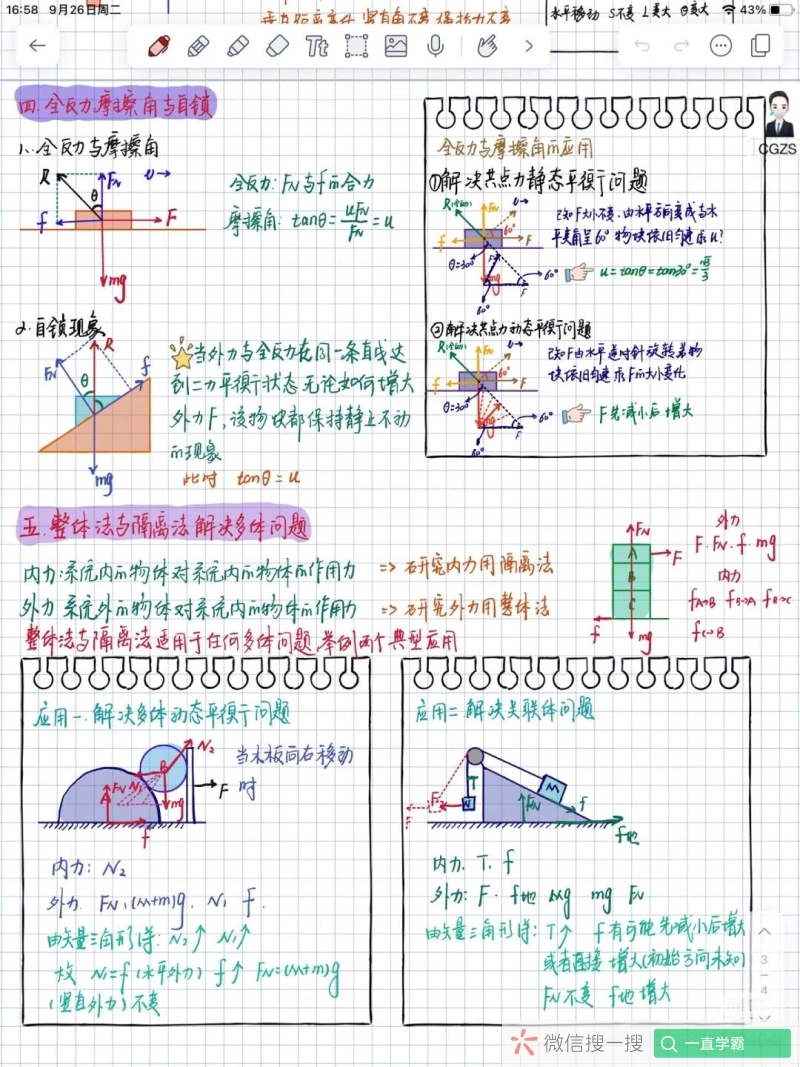 16:58 9月26日周二
水平移动 S不变 L变大 θ变大
43%
四.全反力摩擦角与自锁
1.全反力与摩擦角
R FN υ→
θ
f F
mg
全反力: FN与f的合力
摩擦角: tanθ = uFN/FN = u
CGZS
全反力与摩擦角的应用
①解决共点力静态平衡问题
R(全反力) FN υ→
60°
f F
θ=30° mg
60° F
60°
已知F大小不变.由水平方向变成与水
平夹角呈60° 物块依旧匀速 求u?
u=tanθ=tan30°=√3/3
②解决共点力动态平衡问题
R(全反力) FN υ→
60°
f F
θ=30°
60° F
60°
已知F由水平逆时针旋转若物
块依旧匀速 求F的大小变化
F先减小后增大
2.自锁现象
FN R f
θ
mg
当外力与全反力在同一条直线达
到二力平衡状态 无论如何增大
外力F,该物块都保持静止不动
的现象
此时 tanθ=u
五.整体法与隔离法解决多体问题
内力:系统内的物体对系统内的物体的作用力 => 研究内力用隔离法
外力 系统外的物体对系统内的物体的作用力 => 研究外力用整体法
整体法与隔离法适用于任何多体问题,举例两个典型应用
FN
A F
B
C
f mg
外力
F.FN.f.mg
内力
fA→B fB→A fB→C
fC→B
应用一.解决多体动态平衡问题
N2
B
FN N1
A mg
f
F
当木板向右移动
时
内力: N2
外力. FN.(M+m)g. N1 f.
由矢量三角形得: N2↑ N1↑
故 N1=f(水平外力) f↑ FN=(M+m)g
(竖直外力)不变
应用二 解决关联体问题
T
M
F
FN f
f地
内力. T. f
外力: F. f地 Mg mg FN
由矢量三角形得: T↑ f有可能先减小后增大
或者直接增大(初始方向未知)
FN不变 f地增大
3
4
微信搜一搜
一直学霸